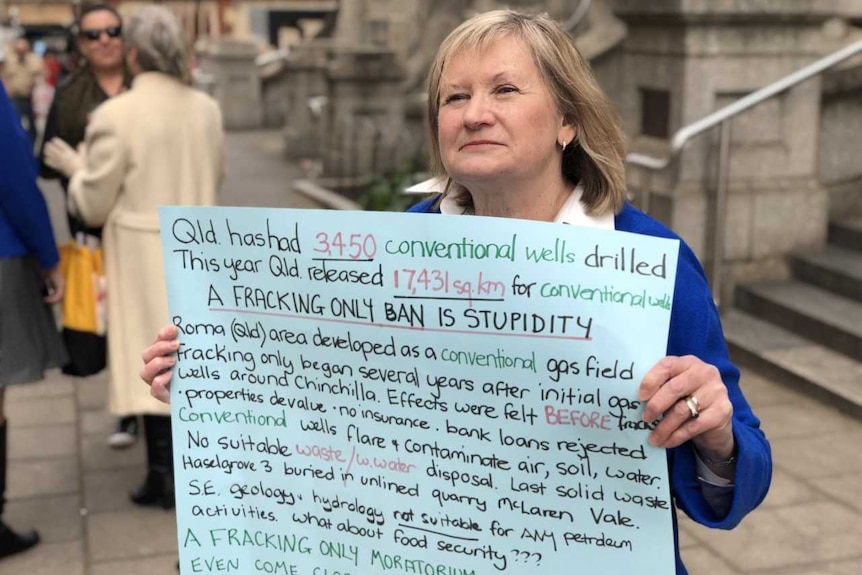 Qld. has had 3,450 conventional wells drilled
This year Qld. released 17,431 sq.km for conventional wells
A FRACKING ONLY BAN IS STUPIDITY
Roma (Qld) area developed as a conventional gas field
Fracking only began several years after initial gas
wells around Chinchilla. Effects were felt BEFORE fracking
· properties devalue · no insurance · bank loans rejected
Conventional wells flare & contaminate air, soil, water.
No suitable waste/w.water disposal. Last solid waste
Haselgrove 3 buried in unlined quarry McLaren Vale.
S.E. geology & hydrology not suitable for ANY petroleum
activities. What about food security???
A FRACKING ONLY MORATORIUM
EVEN COME